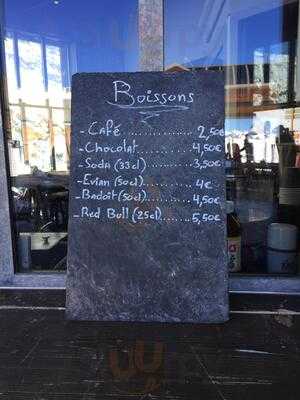 Boissons
- Café ............ 2,50€
- Chocolat ........ 4,50€
- Soda (33cl) ...... 3,50€
- Evian (50cl) ...... 4€
- Badoit (50cl) ..... 4,50€
- Red Bull (25cl) ..... 5,50€